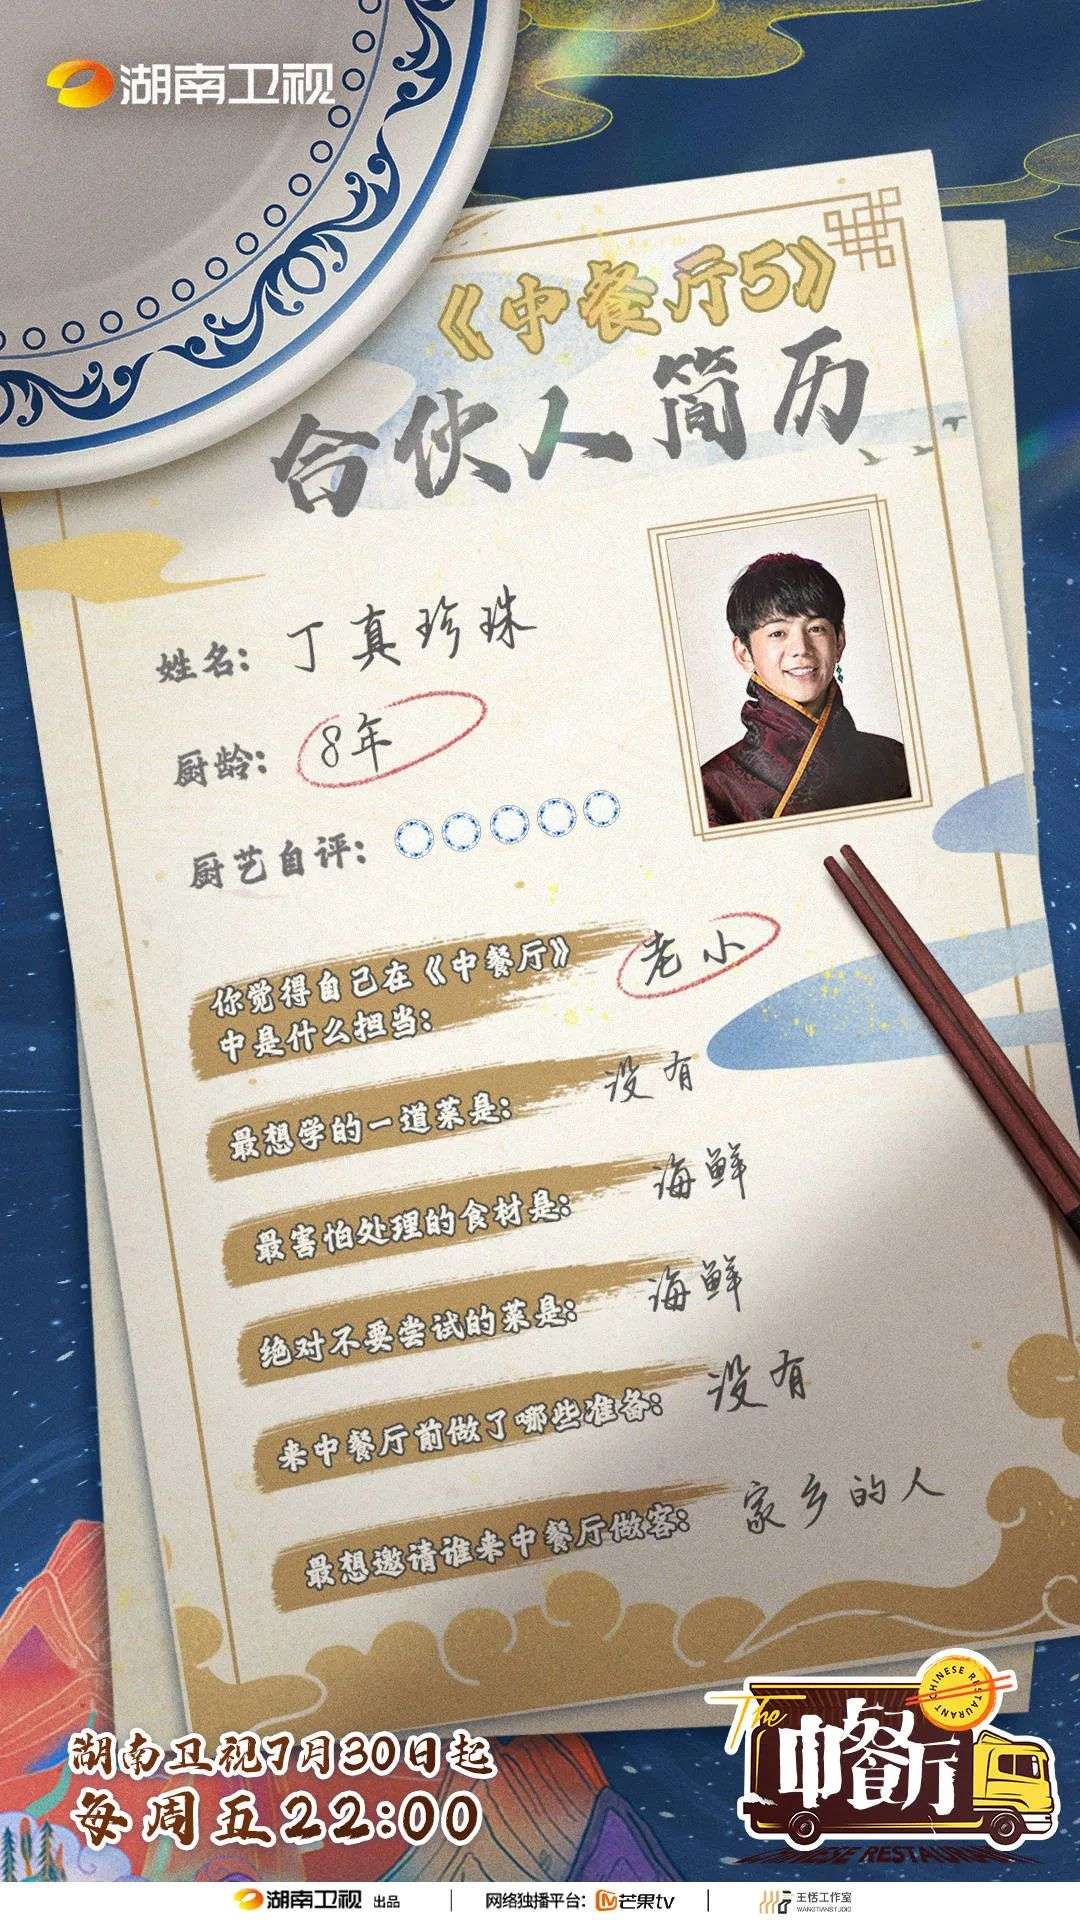 湖南卫视
《中餐厅5》
合伙人简历
姓名：丁真珍珠
厨龄：8年
厨艺自评：
你觉得自己在《中餐厅》
中是什么担当：老小
最想学的一道菜是：没有
最害怕处理的食材是：海鲜
绝对不要尝试的菜是：海鲜
来中餐厅前做了哪些准备：没有
最想邀请谁来中餐厅做客：家乡的人
CHINESE RESTAURANT
The
中餐厅
CHINESE RESTAURANT
湖南卫视7月30日起
每周五22:00
湖南卫视 出品
网络独播平台：芒果tv
王恬工作室
WANGTIANSTUDIO